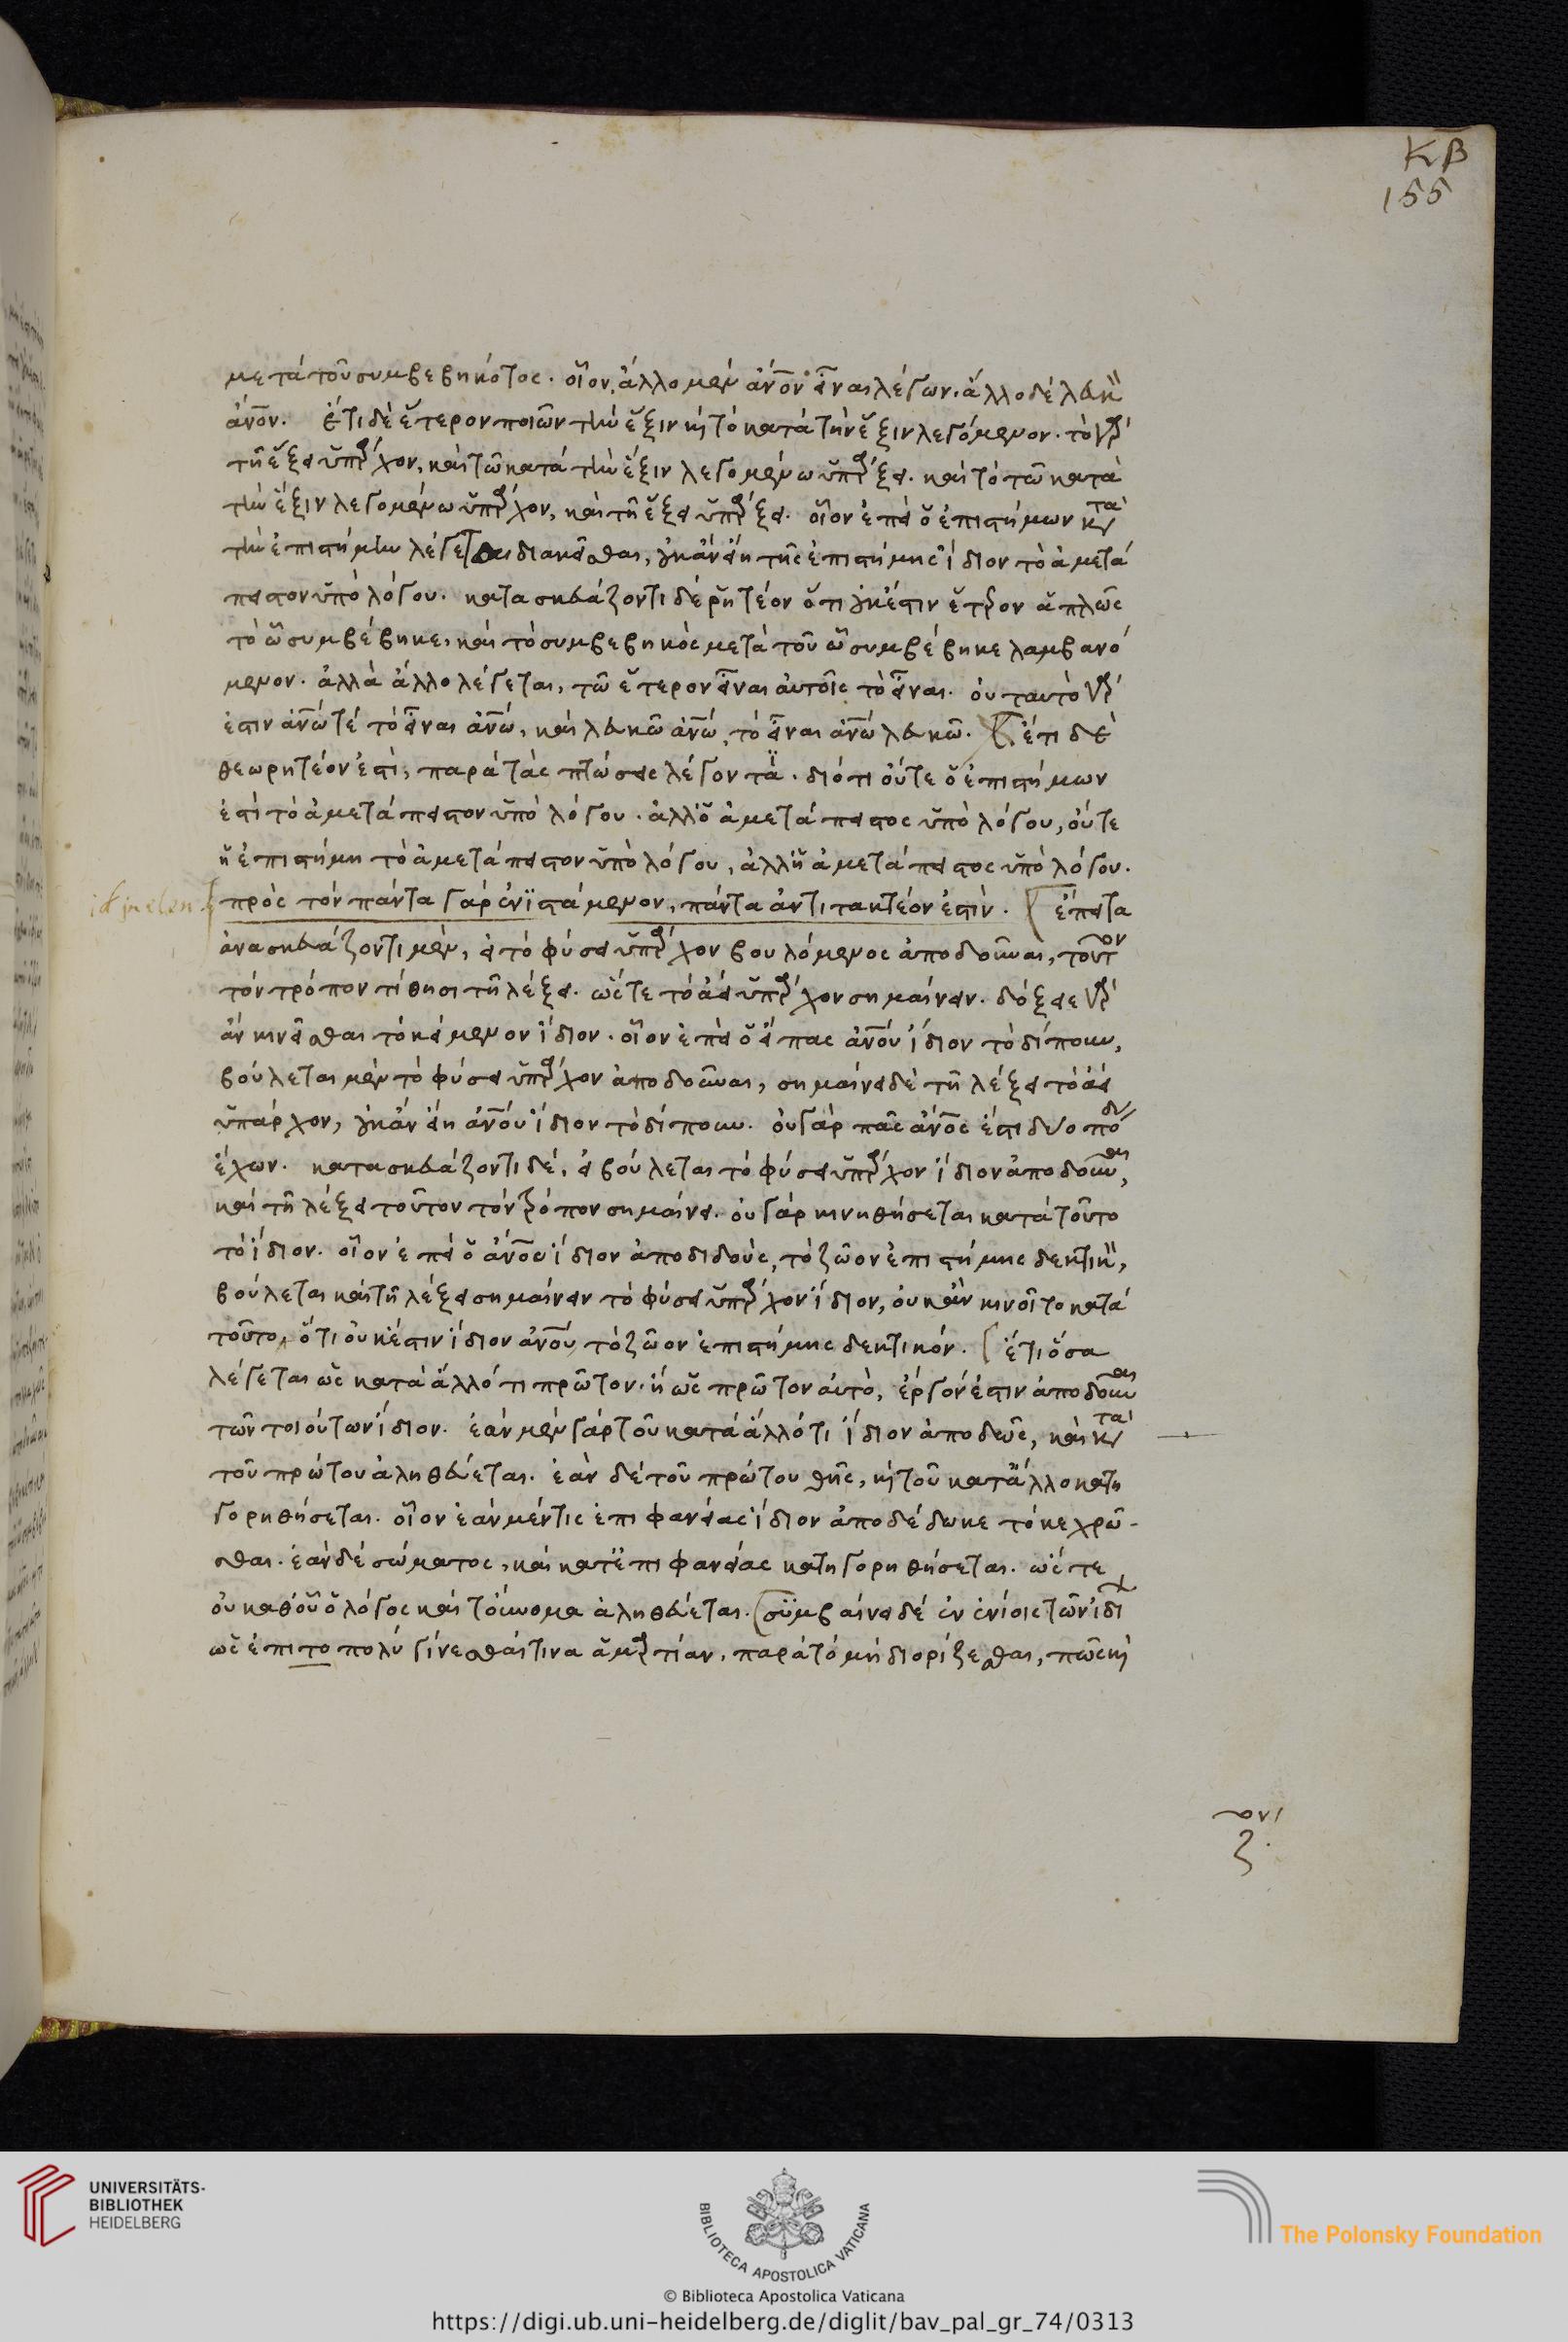 κβ
155
μετὰ τοῦ συμβεβηκότος. οἷον, ἄλλο μὲν ἄνον εἶναι λέγων. ἄλλο δὲ λευκὸν
ἄνον. ἔτι δὲ ἕτερον ποιῶν τὴν ἕξιν καὶ τὸ κατὰ τὴν ἕξιν λεγόμενον. τὸ γὰρ
τῇ ἕξει ὑπάρχον, καὶ τῶ κατὰ τὴν ἕξιν λεγομένω ὑπάρξει. καὶ τὸ τῶ κατὰ
τὴν ἕξιν λεγομένω ὑπάρχον, καὶ τῇ ἕξει ὑπάρξει. οἷον ἐπεὶ ὁ ἐπιστήμων κατὰ
τὴν ἐπιστήμην λέγεται διακεῖσθαι, οὐκ ἂν εἴη τῆς ἐπιστήμης ἴδιον τὸ ἀμετά
πειστον ὑπὸ λόγου. κατασκευάζοντι δὲ ῥητέον ὅτι οὐκ ἔστιν ἕτερον ἁπλῶς
τὸ ὧ συμβέβηκε, καὶ τὸ συμβεβηκὸς μετὰ τοῦ ὧ συμβέβηκε λαμβανό
μενον. ἀλλὰ ἄλλο λέγεται, τῶ ἕτερον εἶναι αὐτοῖς τὸ εἶναι. οὐ ταυτὸ γάρ
ἐστιν ἀνω τέ τὸ εἶναι ἀνω, καὶ λευκῶ ἀνω, τὸ εἶναι ἀνω λευκῶ. ἔτι δὲ
θεωρητέον ἐστὶ, παρὰ τὰς πτώσεις λέγοντα. διότι οὔτε ὁ ἐπιστήμων
ἐστὶ τὸ ἀμετάπειστον ὑπὸ λόγου. ἀλλ' ὁ ἀμετάπειστος ὑπὸ λόγου, οὔτε
ἡ ἐπιστήμη τὸ ἀμετάπειστον ὑπὸ λόγου, ἀλλ' ἡ ἀμετάπειστος ὑπὸ λόγου.
πρὸς τὸν πάντα γὰρ ἐνϊστάμενον, πάντα ἀντιτακτέον ἐστίν. ἔπειτα
ἀνασκευάζοντι μὲν, εἰ τὸ φύσει ὑπάρχον βουλόμενος ἀποδοῦναι, τοῦτον
τὸν τρόπον τίθησι τῇ λέξει. ὥστε τὸ ἀεὶ ὑπάρχον σημαίνειν. δόξειε γὰρ
ἂν κινεῖσθαι τὸ κείμενον ἴδιον. οἷον ἐπεὶ ὁ εἴπας ἀνου ἴδιον τὸ δίπουν,
βούλεται μὲν τὸ φύσει ὑπάρχον ἀποδοῦναι, σημαίνει δὲ τῇ λέξει τὸ ἀεὶ
ὑπάρχον, οὐκ ἂν εἴη ἀνου ἴδιον τὸ δίπουν. οὐ γὰρ πᾶς ἄνος ἐστὶ δύο πόδας
ἔχων. κατασκευάζοντι δὲ, εἰ βούλεται τὸ φύσει ὑπάρχον ἴδιον ἀποδοῦναι,
καὶ τῇ λέξει τοῦτον τὸν τρόπον σημαίνει. οὐ γὰρ κινηθήσεται κατὰ τοῦτο
τὸ ἴδιον. οἷον ἐπεὶ ὁ ἀνου ἴδιον ἀποδιδοὺς, τὸ ζῶον ἐπιστήμης δεκτικὸν,
βούλεται καὶ τῇ λέξει σημαίνειν τὸ φύσει ὑπάρχον ἴδιον, οὐκ ἂν κινοῖτο κατὰ
τοῦτο, ὅτι οὐκ ἔστιν ἴδιον ἀνου τὸ ζῶον ἐπιστήμης δεκτικόν. ἔτι ὅσα
λέγεται ὡς κατὰ ἄλλό τι πρῶτον. ἢ ὡς πρῶτον αὐτὸ, ἔργον ἐστιν ἀποδοῦναι
τῶν τοιούτων ἴδιον. ἐὰν μὲν γὰρ τοῦ κατὰ ἄλλό τι ἴδιον ἀποδῶς, καὶ κατὰ
τοῦ πρώτου ἀληθεύεται. ἐὰν δὲ τοῦ πρώτου θῇς, καὶ τοῦ κατ' ἄλλο κατη
γορηθήσεται. οἷον ἐὰν μέν τις ἐπιφανείας ἴδιον ἀποδέδωκε τὸ κεχρῶ-
σθαι. ἐὰν δὲ σώματος, καὶ κατ' ἐπιφανείας κατηγορηθήσεται. ὥστε
οὐ καθ' οὗ ὁ λόγος καὶ τὄυνομα ἀληθεύεται. συμβαίνει δὲ ἐν ἐνίοις τῶν ἰδίων
ὡς ἐπι το πολὺ γίνεσθαί τινα ἁμαρτίαν, παρὰ τὸ μὴ διορίζεσθαι, πῶς καὶ
UNIVERSITÄTS-
BIBLIOTHEK
HEIDELBERG
BIBLIOTECA APOSTOLICA VATICANA
The Polonsky Foundation
© Biblioteca Apostolica Vaticana
https://digi.ub.uni-heidelberg.de/diglit/bav_pal_gr_74/0313